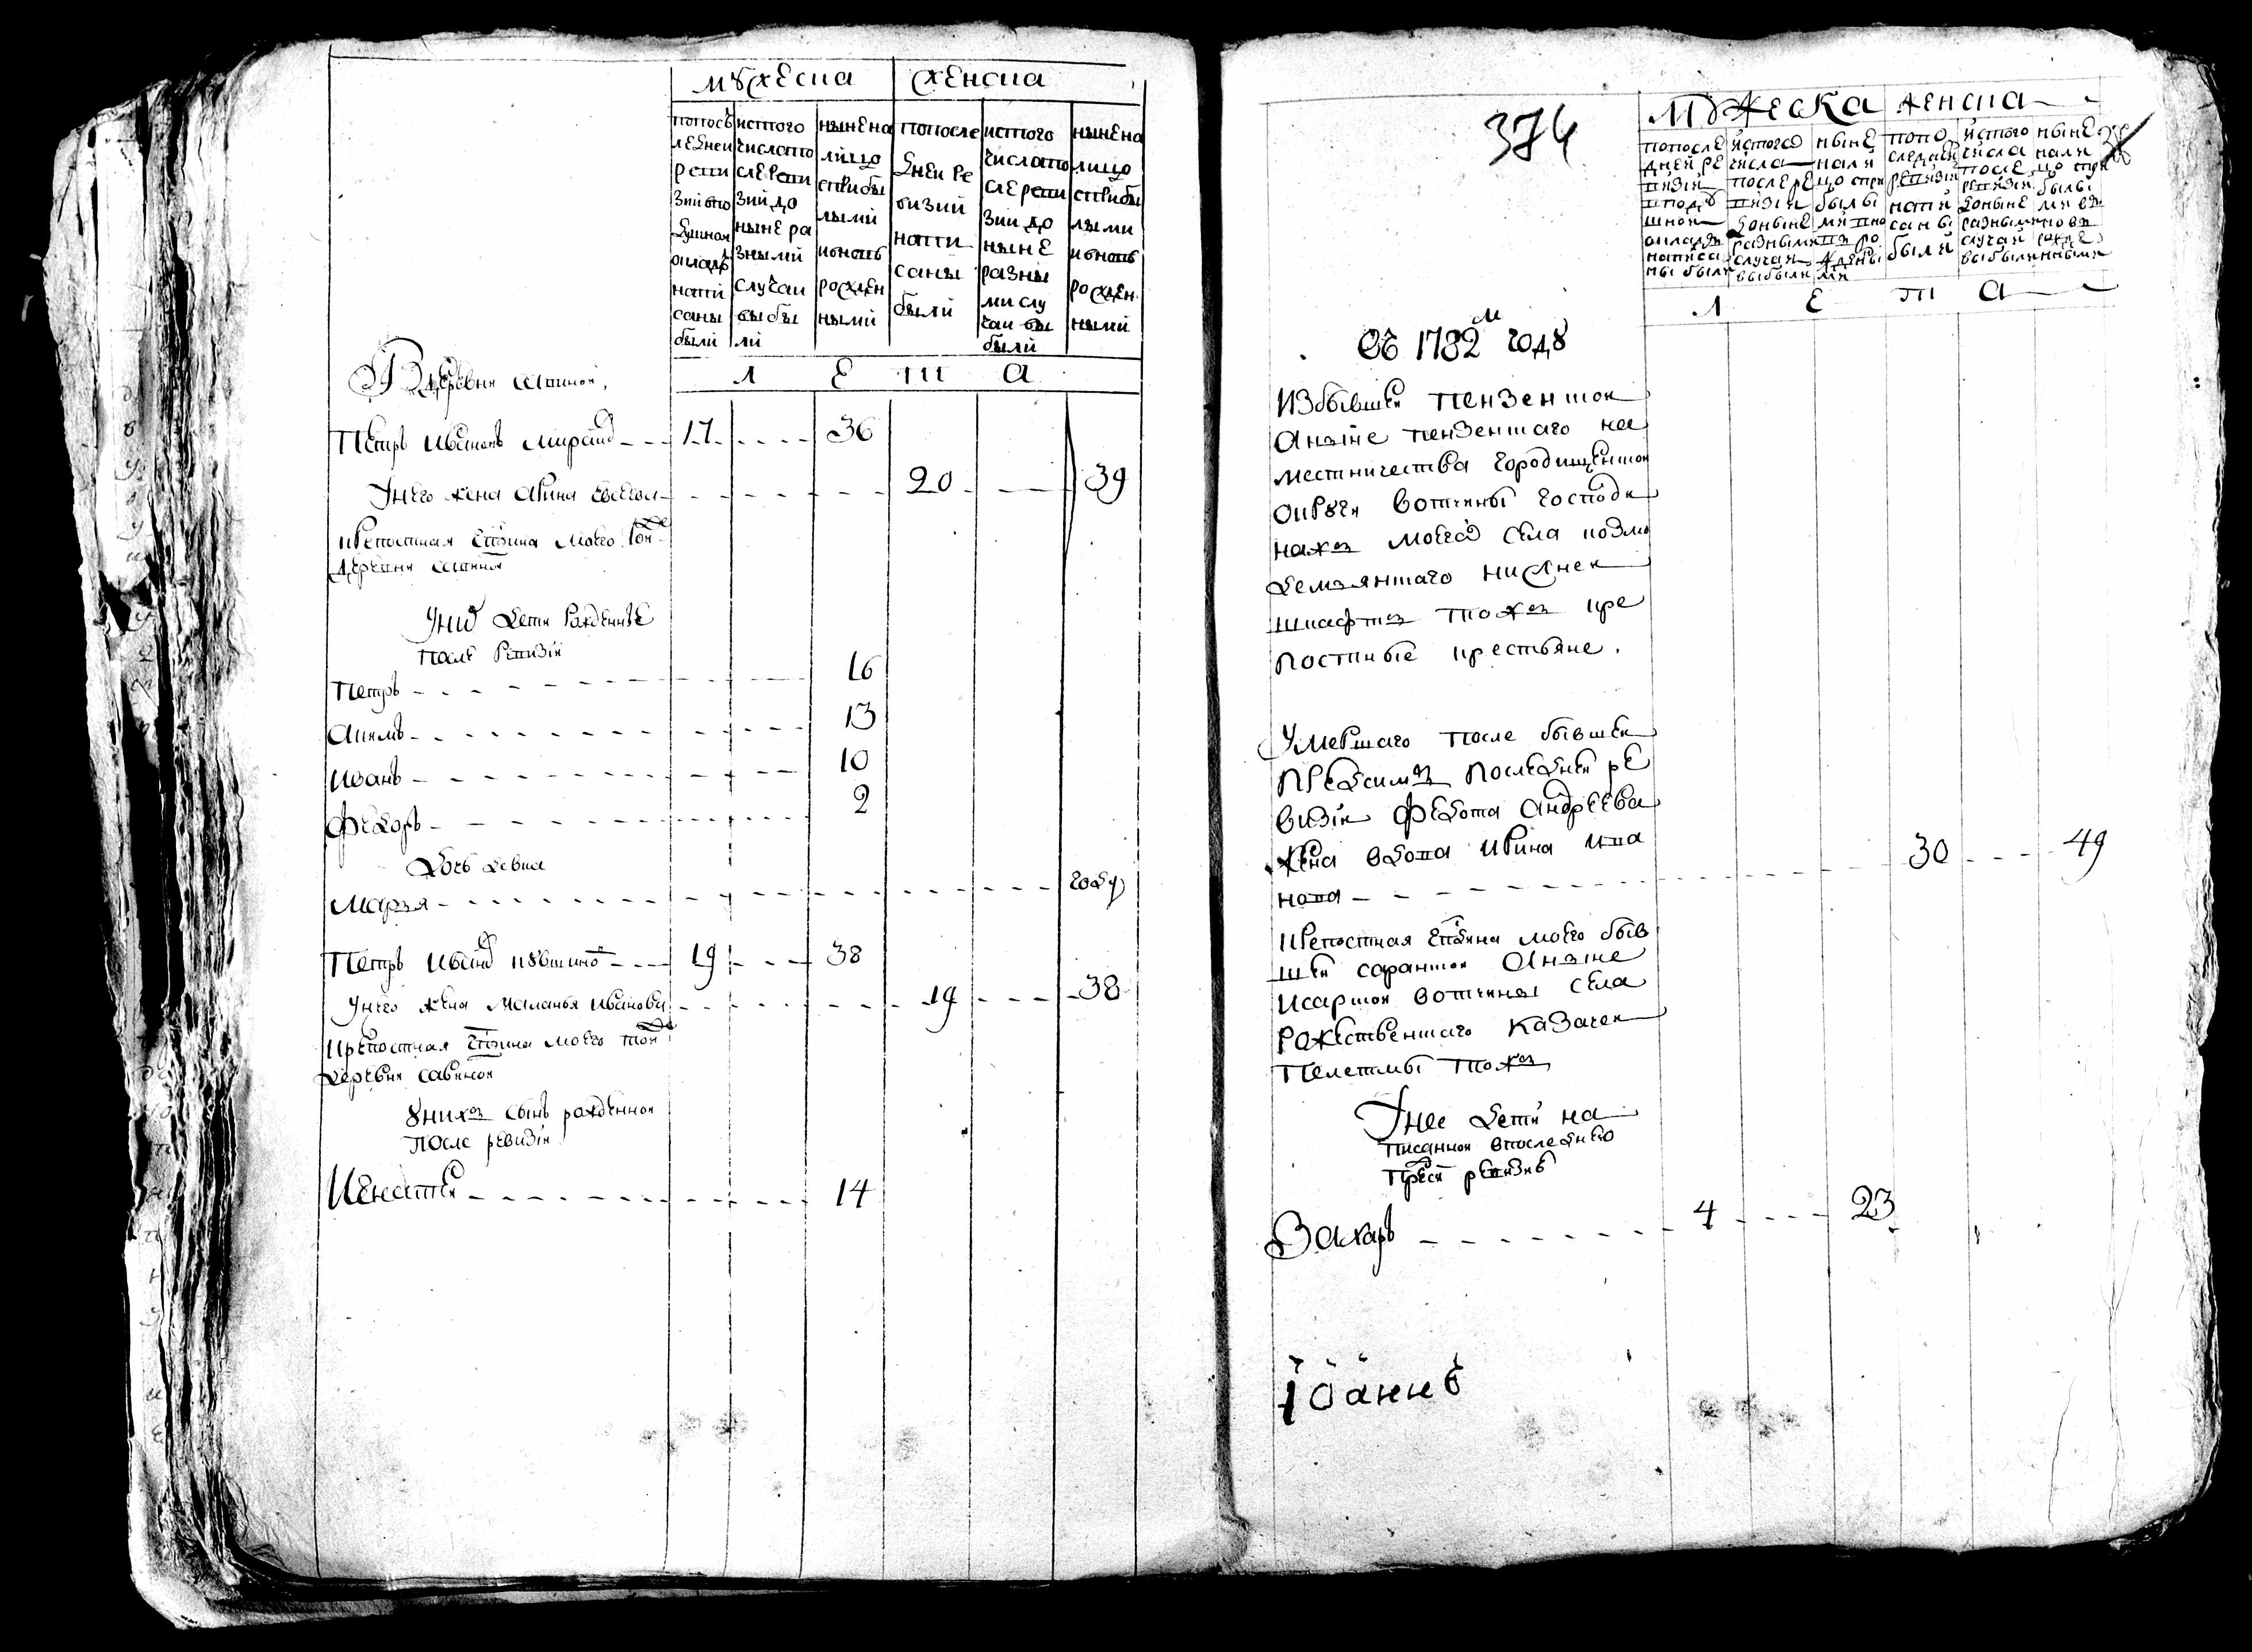 мужеска женска
попосъ
лѣдней
реви
зии впо
душной
окладъ
напи
саны
были
истого
числапо
сле реви
зии до
ныне ра
зными
случаи
выбы
ли
нынена
лицо
сприбы
лыми
ивновь
рожден
ными
попосле
дней ре
визии
напи
саны
были
истого
числапо
сле реви
зии до
ныне
разны
ми слу
чаи вы
были
нынена
лицо
сприбы
лыми
ивновь
рожден
ными
Л Е Т А
В деревни
Петръ Ивановъ 17 36
Унего жена Арина 20 39
крепостная гдина моего
деревни
Уних дети рожденные
после ревизіи
Петръ 16
Акимъ 13
Иванъ 10
Федоръ 2
дочь девка
Марья году
Петръ Иванов 19 38
Унего жена Маланья Иванова 19 38
крепостная гдина моего той
деревни савиной
Униха сынъ рожденной
после ревизіи
Игнатей 14
374
Мужеска женска
попосле
дней ре
визіи
вподу
шной
окладъ
написа
ны были
истого
числа
после ре
визіи
доныне
разными
случаи
выбыли
ныне
нали
цо спри
былы
ми вно
въ ро
жденны
ми
попо
следней
ревизіи
напи
саны
были
истого
числа
после
ревизіи
доныне
разными
случаи
выбыли
ныне
нали
цо спри
былы
ми вн
новъ
рожде
нными
Л Е Т А
Съ 1782м году
Избывшей пензенской
Округи пензенского на
местничества городищенской
округи вотчины господи
нажъ моего села
шкафта тожъ кре
постные крестьяне.
Умершаго после бывшей
предсимъ последней ре
визіи Федота Андреева
жена вдова Ирина ива
нова 30 49
крепостная гдина моего быв
шей саранской
Исарской вотчины села
Рожественского Казачей
Пелетмы тожъ
Унее дети на
писанной впоследнею
пред сим ревизие
Захаръ 4 23
Іоаннъ